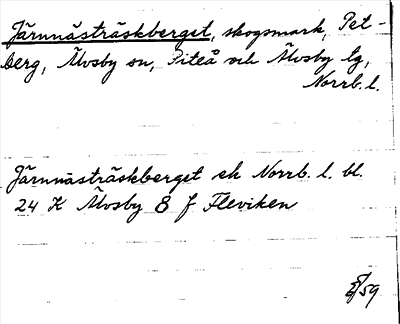 Järnnästräskberget, skogsmark, Pet-
berg, Älvsby sn, Piteå och Älvsby tg,
Norrb. l.
Järnnästräskberget ek Norrb. l. bl.
24 K Älvsby 8 f Fleviken